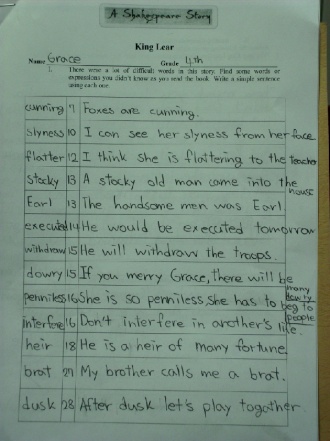 A Shakespeare Story
King Lear
Name Grace Grade 4th
1. There were a lot of difficult words in this story. Find some words or
expressions you didn't know as you read the book. Write a simple sentence
using each one.
cunning 9 Foxes are cunning.
slyness 10 I can see her slyness from her face
flatter 12 I think she is flattering to the teacher
Stocky 13 A stocky old man came into the house
Earl 13 The handsome men was Earl
executed 14 He would be executed tomorrow
withdraw 15 He will withdraw the troops.
dowry 15 If you merry Grace, there will be many dowry
penniless 16 She is so penniless, she has to beg to people
interfere 16 Don't interfere in another's life.
heir 18 He is a heir of many fortune
brat 21 My brother calls me a brat.
dusk 28 After dusk let's play togather